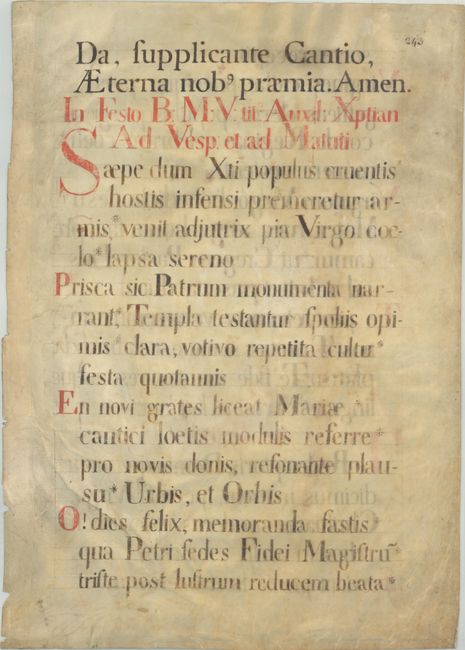 243
Da, ſupplicante Cantio,
Æterna nobꝰ præmia. Amen.
In Feſto B: M: V: tit: Auxil: Xptian
Ad Vesp: et ad Matuti
Sæpe dum Xti populus cruentis
hostis infensi premeretur ar-
mis,* venit adjutrix pia Virgo coe-
lo* lapsa sereno
Prisca sic Patrum monumenta nar-
rant,* Templa testantur ſpoliis opi-
mis* clara, votivo repetita cultu*
festa quotannis
En novi grates liceat Mariæ*
cantici loetis modulis referre*
pro novis donis, reſonante plau-
su* Urbis, et Orbis
O! dies felix, memoranda faſtis*
qua Petri ſedes Fidei Magiſtru̅*
triſte post luſtrum reducem beata*